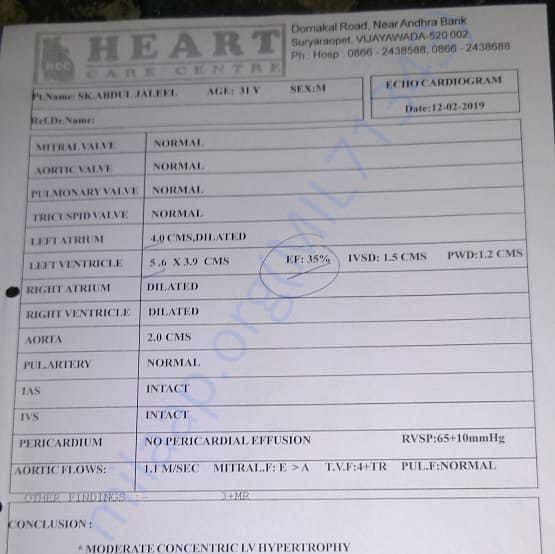 HCC HEART
CARE CENTRE
Dornakal Road, Near Andhra Bank
Suryaraopet, VIJAYAWADA-520 002
Ph : Hosp : 0866 - 2438588, 0866 - 2438688
Pt.Name: SK.ABDUL JALEEL AGE: 31Y SEX:M
Ref.Dr.Name:
ECHO CARDIOGRAM
Date:12-02-2019
MITRAL VALVE NORMAL
AORTIC VALVE NORMAL
PULMONARY VALVE NORMAL
TRICUSPID VALVE NORMAL
LEFT ATRIUM 4.0 CMS,DILATED
LEFT VENTRICLE 5.6 X 3.9 CMS EF: 35% IVSD: 1.5 CMS PWD:1.2 CMS
RIGHT ATRIUM DILATED
RIGHT VENTRICLE DILATED
AORTA 2.0 CMS
PUL.ARTERY NORMAL
IAS INTACT
IVS INTACT
PERICARDIUM NO PERICARDIAL EFFUSION RVSP:65+10mmHg
AORTIC FLOWS: 1.1 M/SEC MITRAL.F: E > A T.V.F:4+TR PUL.F:NORMAL
OTHER FINDINGS :- 3+MR
CONCLUSION :
* MODERATE CONCENTRIC LV HYPERTROPHY